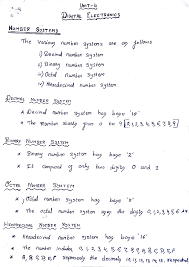 Unit-4
Digital Electronics
Number Systems
The various number systems are as follows
i) Decimal number system
ii) Binary number System
iii) Octal number System
iv) Hexadecimal number system
Decimal Number System
* Decimal number system has base '10'
* The number starts from 0 to 9 0,1,2,3,4,5,6,7,8,9
Binary Number System
* Binary number system has base '2'
* It composed of only two digits 0 and 1
Octal Number System
* Octal number system has base '8'
* The octal number system uses the digits 0,1,2,3,4,5,6
Hexadecimal Number System
* Hexadecimal number system has base '16'
* The number includes 0,1,2,3,4,5,6,7,8,9,A,B,C,D,E,F
* A,B,C,D,E,F represents the decimals 10,11,12,13,14,15, respectively